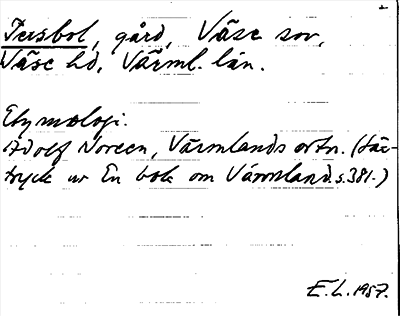 Tersbol, gård, Väse sn,
Väse hd, Värml. län.
Etymologi.
Adolf Noreen, Värmlands ortn. (Sär-
tryck ur En bok om Värmland. s. 381.)
E.L. 1957.